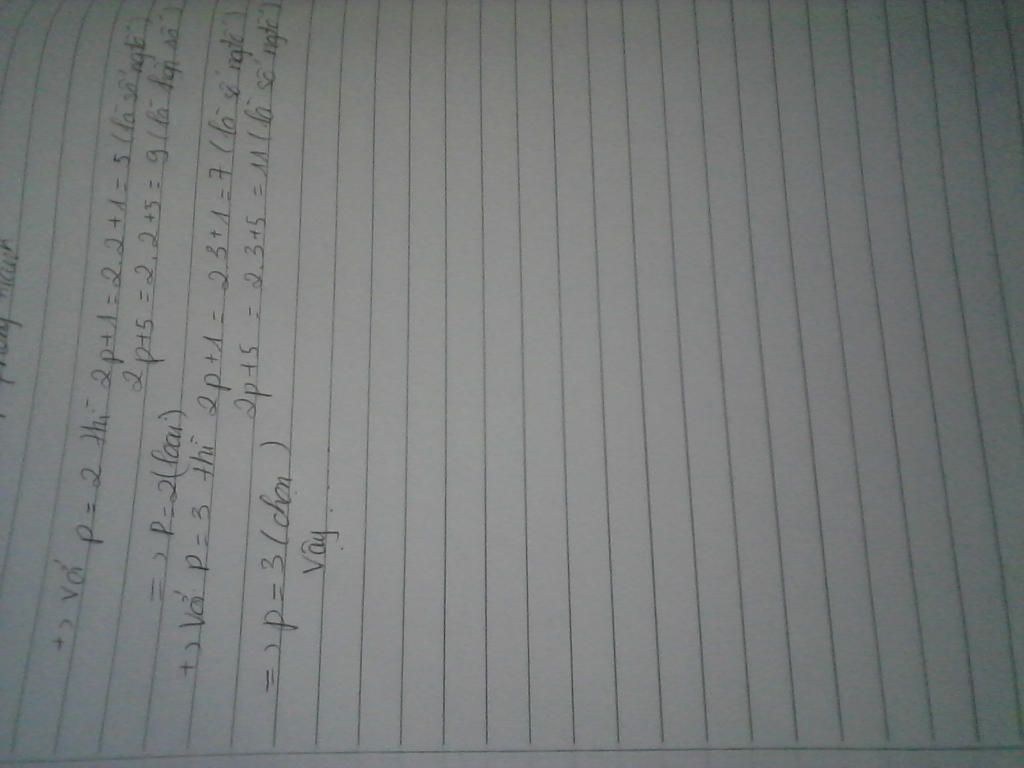 +> Với p = 2 thì 2p+1 = 2.2+1 = 5 (là số ngtố)
2p+5 = 2.2+5 = 9 (là hợp số)
=> p = 2 (loại)
+> Với p = 3 thì 2p+1 = 2.3+1 = 7 (là số ngtố)
2p+5 = 2.3+5 = 11 (là số ngtố)
=> p = 3 (chọn)
Vậy .........